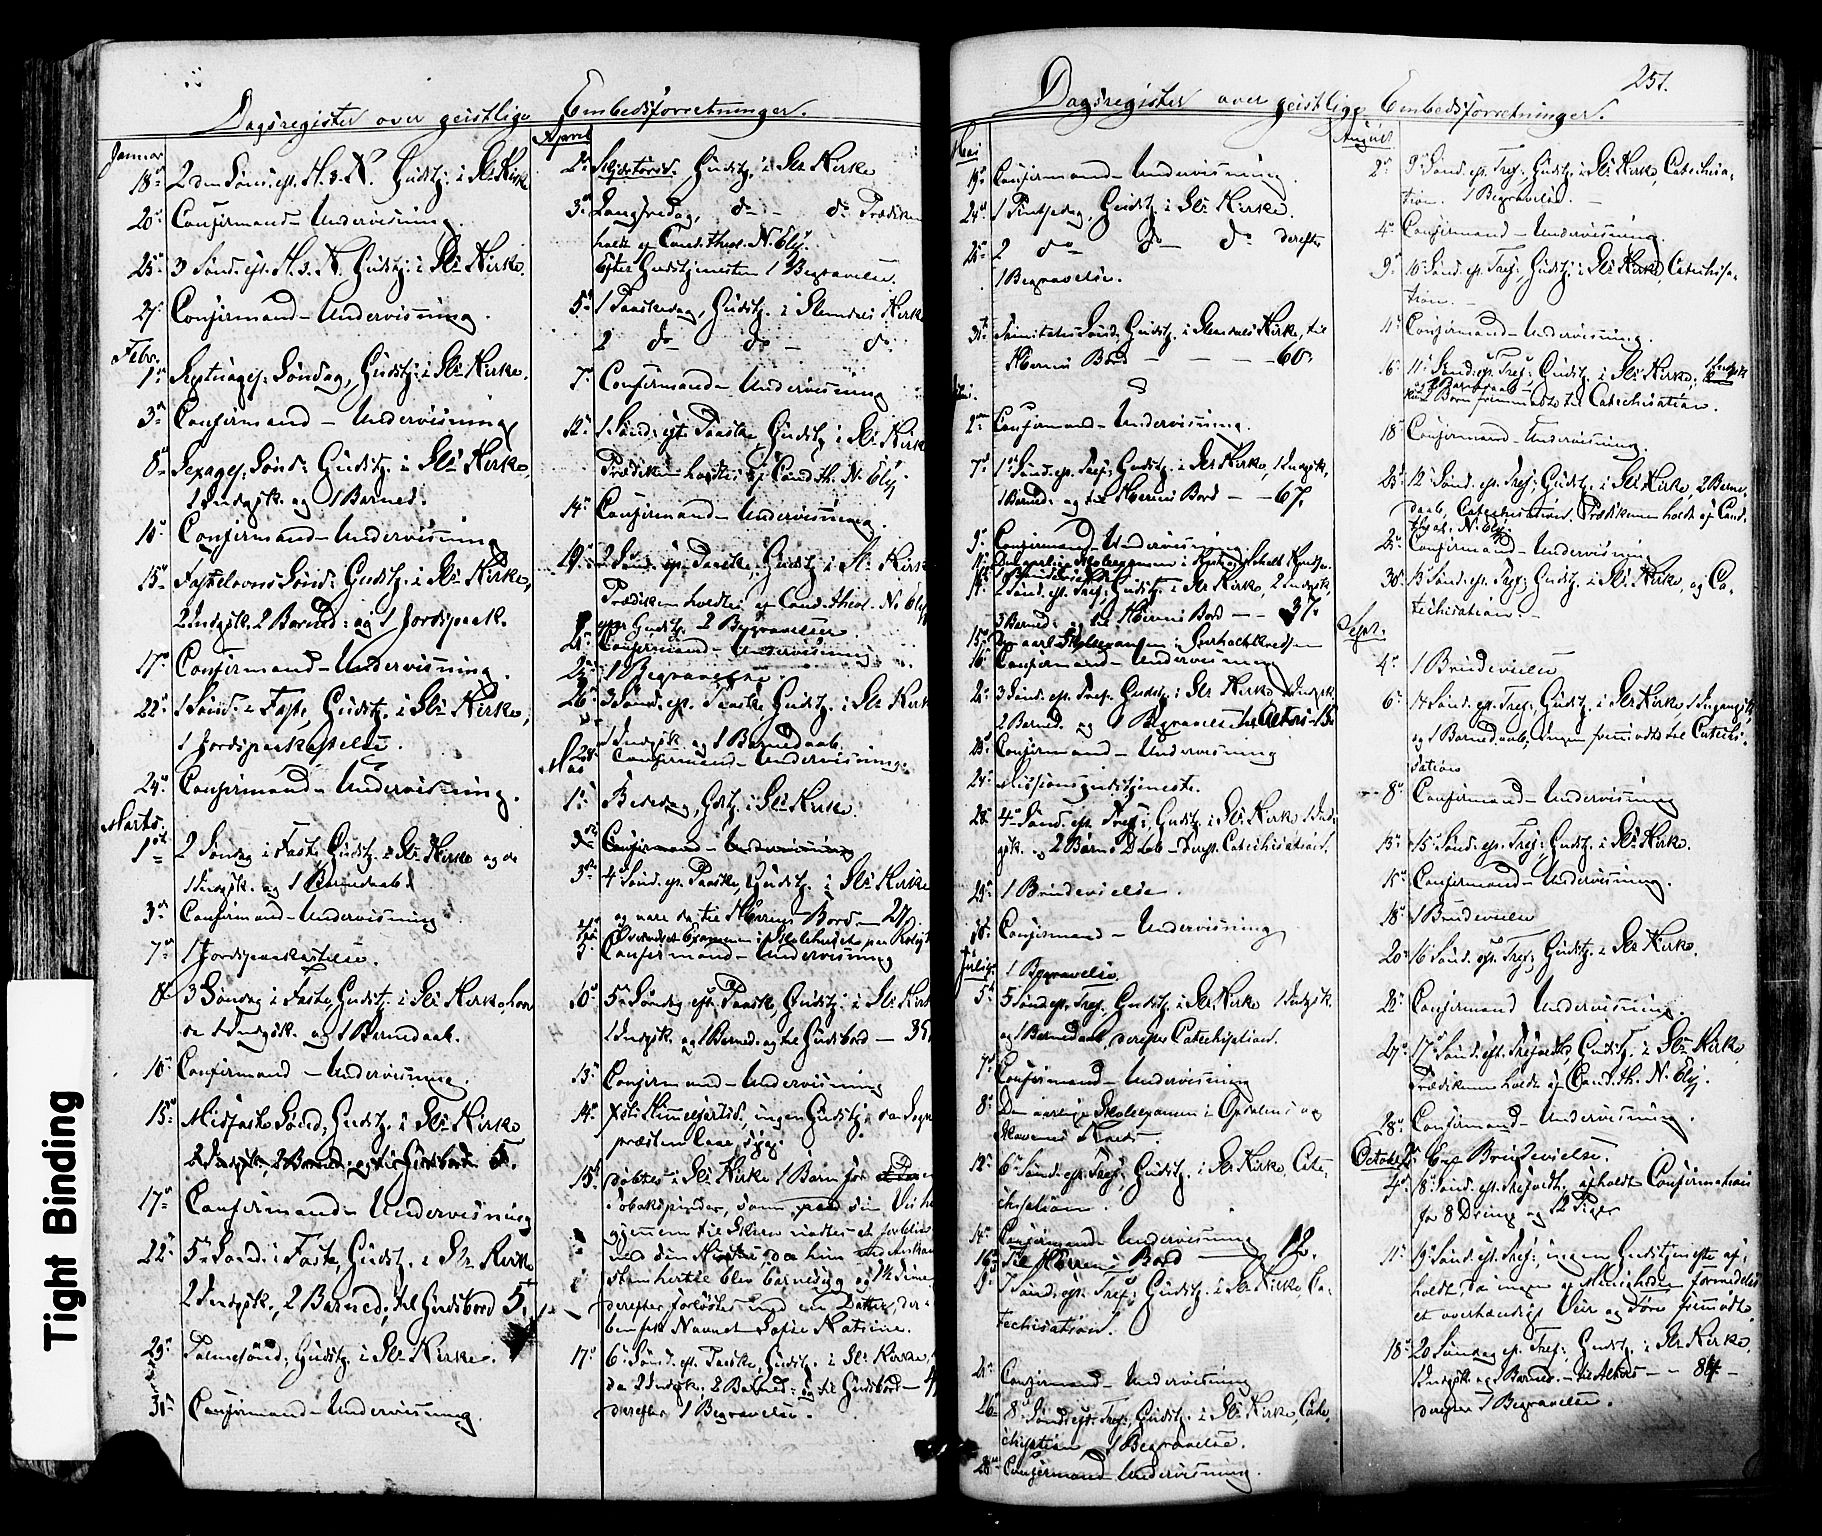 Dagsregister over geistlige Embedsforretninger.
Januar
18de 2den Sønd. eft. H. 3. K. Gudstj. i Sls Kirke
20de Confirmand-Underviisning
25de 3 Sønd. eft. H. 3. K. Gudstj. i Sls Kirke.
27de Confirmand-Underviisning.
Febr.
1ste Septuages: Søndag, Gudstj. i Sls Kirke.
3die Confirmand-Underviisning
8de Sexages: Sønd: Gudstj. i Sls Kirke,
1 Indgsk. og 1 Barned.
10de Confirmand-Underviisning
15de Fastelavns Sønd: Gudstj. i Sls Kirke,
2 Indgsk. 2 Barned: og 1 Jordspaak.
17de Confirmand-Underviisning.
22de 1 Sønd. i Faste, Gudstj. i Sls Kirke,
1 Jordspaakastelse.
24de Confirmand-Underviisning.
Marts.
1ste 2 Søndag i Faste, Gudstj. i Sls Kirke og da
1 Indgsk. og 1 Barnedaab.
3die Confirmand-Underviisning
7de 1 Jordspaakastelse.
8de 3 Søndag i Faste, Gudstj. i Sls Kirke,
da 1 Indgsk. og 1 Barnedaab.
10de Confirmand-Underviisning.
15de Midfaste Sønd; Gudstj. i Sls Kirke
2 Indgsk, 2 Barned: og til Gudsbord 5.
17de Confirmand-Underviisning
22de 5te Sønd. i Faste, Gudstj. i Sls Kirke
2 Indgsk, 2 Barned; til Gudsbord 5.
29de Palmesønd; Gudstj. i Sls Kirke.
31te Confirmand-Underviisning.
April
2den Skjærtorsd. Gudstj. i Sls Kirke
3die Langfredag, do - do Prædiken
holdt af Cand. theol. N. Elg.
Efter Gudstjenesten 1 Begravelse.
5te 1 Paaskedag, Gudstj. i Slemdals Kirke
2 do do - do
7de Confirmand-Underviisning
12te 1 Sønd: eft. Paaske, Gudstj. i Sls Kirke
Prædiken holdtes af Cand. th. N. Elg
14de Confirmand-Underviisning.
19de 2 Sønd. eft. Paaske, Gudstj. i Sls Kirke
Prædiken holdtes af Cand. theol. N. Elg
efter Gudstj. 2 Begravelser.
21de Confirmand-Underviisning
1 Begravelse.
26de 3 Sønd. eft. Paaske Gudstj. i Sls Kirke
1 Indgsk og 1 Barnedaab.
28de Confirmand-Underviisning.
Mai
1ste Bededag, Gdstj. i Sls Kirke.
Confirmand-Underviisning
3die 4 Sønd. eft. Paaske, Gudstj. i Sls Kirke
og vare da til Herrens Bord - 27.
Examen i Skolehuset paa
5te Confirmand-Underviisning
10de 5te Søndag eft. Paaske, Gudstj. i Sls Kirke
1 Indgsk. og 1 Barned: og til Gudsbord -
13de Confirmand-Underviisning
14de Xsti Himmelfartsd, ingen Gudstj; da Sogne
præsten laae syg.
15de døbtes i Sls Kirke 1 Barn for
derefter forløstes med en Datter, der
ben fik Navnet Sofie Katrine.
17de 6te Sønd. eft. Paaske, Gudstj. i Sls Kirke,
da 2 Indgsk; 2 Barned: og til Gudsbord -
derefter 1 Begravelse.
251.
Dagsregister over geistlige Embedsforretninger.
Mai
19de Confirmand-Underviisning.
24de 1 Pintsedag, Gudstj. i Sls Kirke.
25de 2 do do - do derefter
1 Begravelse.
31te Trinitatis Sønd; Gudstj. i Slemdals Kirke, til
Herrens Bord - - - 60.
2den Confirmand-Underviisning.
7de 1ste Sønd. eft. Tref; Gudstj. i Sls Kirke, 1 Indgsk,
1 Barned: og til Herrens Bord - 67.
9de Confirmand-Underviisning
2 Sønd. eft. Tref; Gudstj. i Sls Kirke, 2 Indgsk,
3 Barned: og til Herrens Bord - 37.
16de Confirmand-Underviisning
3 Sønd. eft. Tref. Gudstj. i Sls Kirke 1 Indgsk
2 Barned. og 1 Begravelse til Alters -
23de Confirmand-Underviisning
24de Missionsgudstjeneste.
28de 4de Sønd. eft. Tref:, Gudstj. i Sls Kirke 1 Ind-
gsk. og 2 Børns Daab - dereft. Catechisation.
29de 1 Brudevielse.
Confirmand-Underviisning
Juli
1 Begravelse.
5te 5 Sønd. eft. Tref:, Gudstj. i Sls Kirke 1 Indgsk.
og 1 Barnedaab, derefter Catechisation.
7de Confirmand-Underviisning
8de Den aarlige Skoleexamen i Opdalens og
Kreds.
12te 6te Sønd. eft. Tref; Gudstj. i Sls Kirke, Cate-
chisation.
14de Confirmand-Underviisning
Til Herrens Bord - 12.
19de 7 Sønd. eft. Tref; Gudstj. i Sls Kirke Ca-
techisation.
21de Confirmand-Underviisning
26de 8de Sønd. eft. Tref:, Gudstj. i Sls Kirke, Cate-
chisation 1 Begravelse.
28de Confirmand-Underviisning.
August
2den 9de Sønd. eft. Tref; Gudstj. i Sls Kirke, Catechisa-
tion. 1 Begravelse. -
4de Confirmand-Underviisning.
9de 10de Sønd. eft. Tref; Gudstj. i Sls Kirke, Catechisa-
tion. -
11te Confirmand-Underviisning.
16de 11te Sønd. eft. Tref; Gudstj. i Sls Kirke, 1 Indgsk
og 1 Barnedaab
kun 2 Børn fremmødte til Catechisation.
18de Confirmand-Underviisning
23de 12te Sønd. eft. Tref; Gudstj. i Sls Kirke, 2 Barne-
daab, Catechisation. Prædikenen holdt af Cand.
theol. N. Elg.
25de Confirmand-Underviisning
30de 13 Sønd. eft. Tref; Gudstj. i Sls Kirke, og Ca-
techisation. -
Sept.
4de 1 Brudevielse
6te 14 Sønd. eft. Tref: Gudstj. i Sls Kirke 1 Ingangsk.
og 1 Barnedaab; ingen fremmødte til Catechi-
sation
8de Confirmand-Underviisning
13de 15de Sønd. eft. Tref; Gudstj. i Sls Kirke.
15de Confirmand-Underviisning.
18de 1 Brudevielse
20de 16 Sønd. eft. Tref; Gudstj. i Sls Kirke.
22de Confirmand Underviisning.
27de 17de Sønd. eft. Trefoldh, Gudstj. i Sls Kirke
Prædikenen holdt af Cand. th. N. Elg.
Confirmand-Underviisning.
October
2den Brudevielse.
4de 18 Sønd. eft. Trefoldh; afholdt Confirmation
for 8 Drenge og 12 Piger
11te 19de Sønd. eft. Tref; ingen Gudstjeneste af-
holdt, da ingen af Menigheden formedelst
et overhændigt Veir og Føre fremmødte.
18de 20 Søndag eft. Tref:, Gudstj. i Sls Kirke,
1 Indgsk og 1 Barned. - til Alters - - 84 -
derefter 1 Begravelse.
Tight Binding